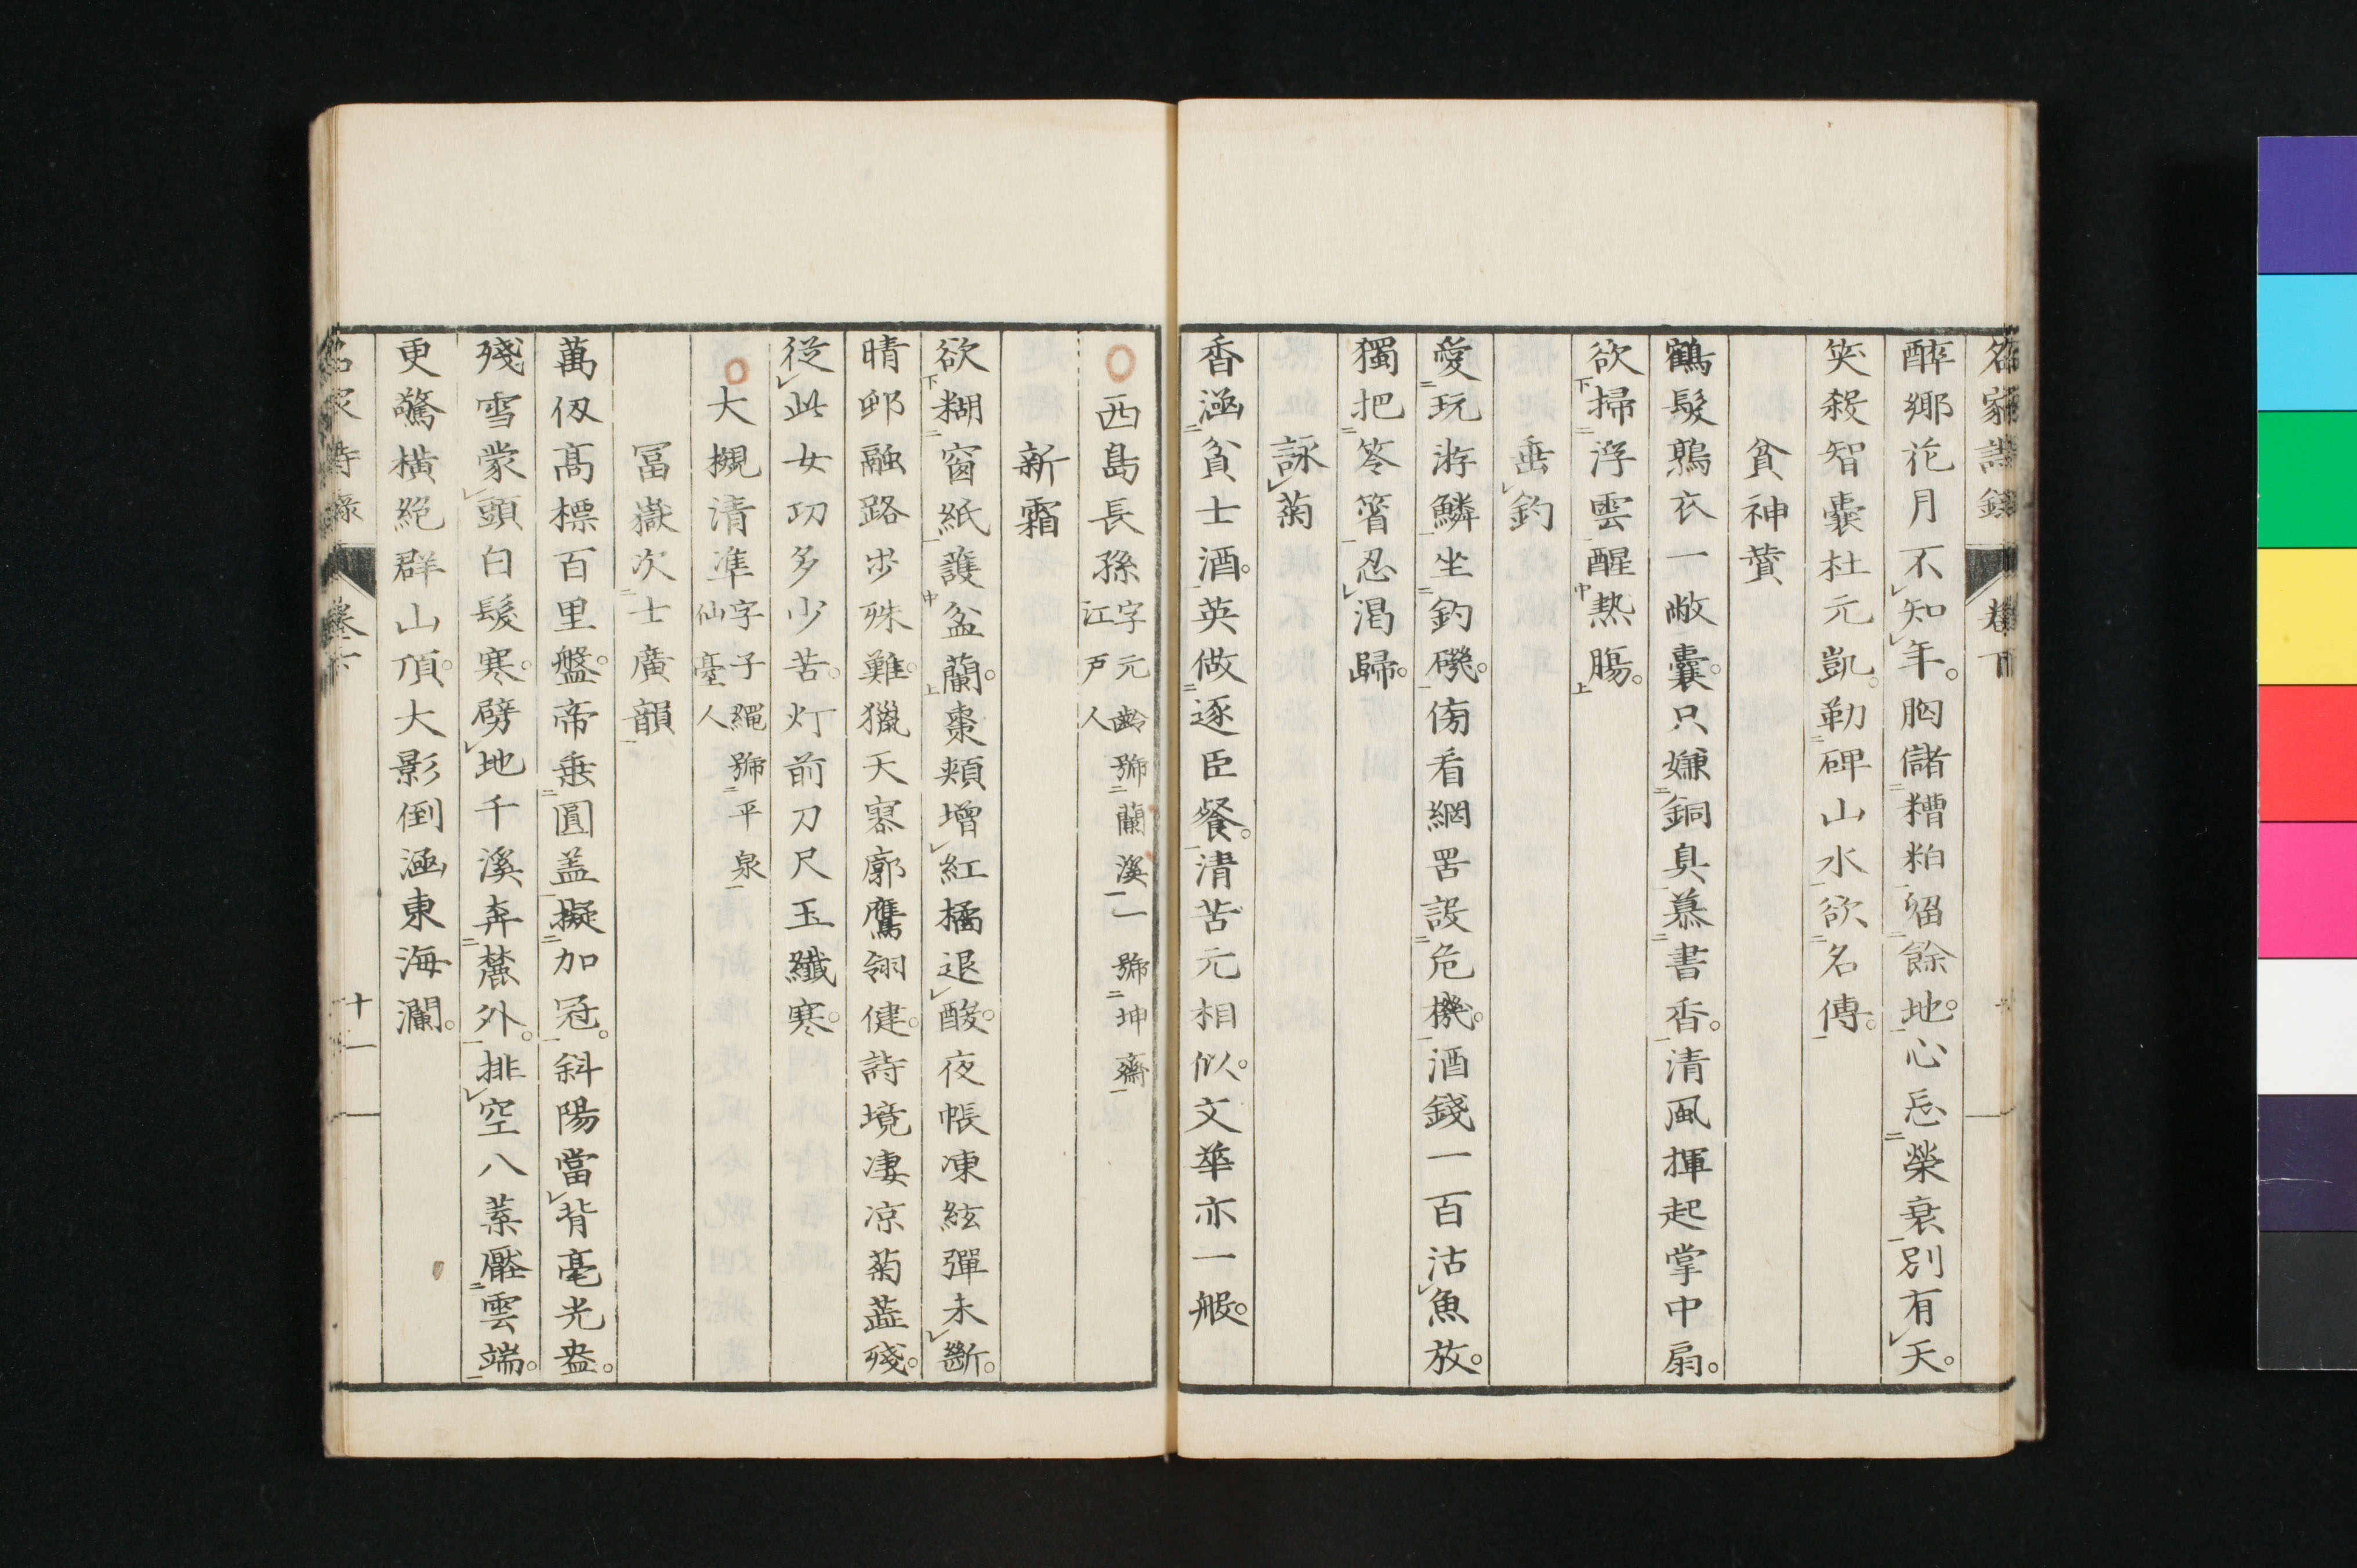 名家詩録 卷下
醉鄉花月不知年。胸儲糟粕留餘地。心忘榮衰別有天。
笑殺智囊杜元凱。勒碑山水欲名傳。
貧神贊
鶴髮鶉衣一敝囊。只嫌銅臭慕書香。清風揮起掌中扇。
欲掃浮雲醒熱腸。
垂釣
愛玩游鱗坐釣磯。傍看網罟設危機。酒錢一百沽魚放。
獨把笭箵忍渴歸。
詠菊
香涵貧士酒。英做逐臣餐。清苦元相似。文華亦一般。
西島長孫字元齡號蘭溪一號坤齋江戸人
新霜
欲糊窗紙護盆蘭。棗頰增紅橘退酸。夜帳凍絃彈未斷。
晴郵融路步殊難。獵天寥廓鷹翎健。詩境凄凉菊蕋殘。
從此女功多少苦。灯前刀尺玉纖寒。
大槻清準字子繩號平泉仙臺人
冨嶽次士廣韻
萬仭髙標百里盤。帝垂圓盖擬加冠。斜陽當背毫光盎。
殘雪蒙頭白髮寒。劈地千溪奔麓外。排空八葉壓雲端。
更驚橫絕群山頂。大影倒涵東海瀾。
名家詩録 卷下 十一